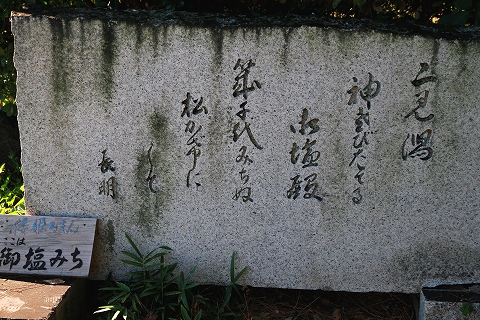 二見潟
神さびたてる
御塩殿
幾千代みちぬ
松かげに
して
長明
ここは
御塩みち